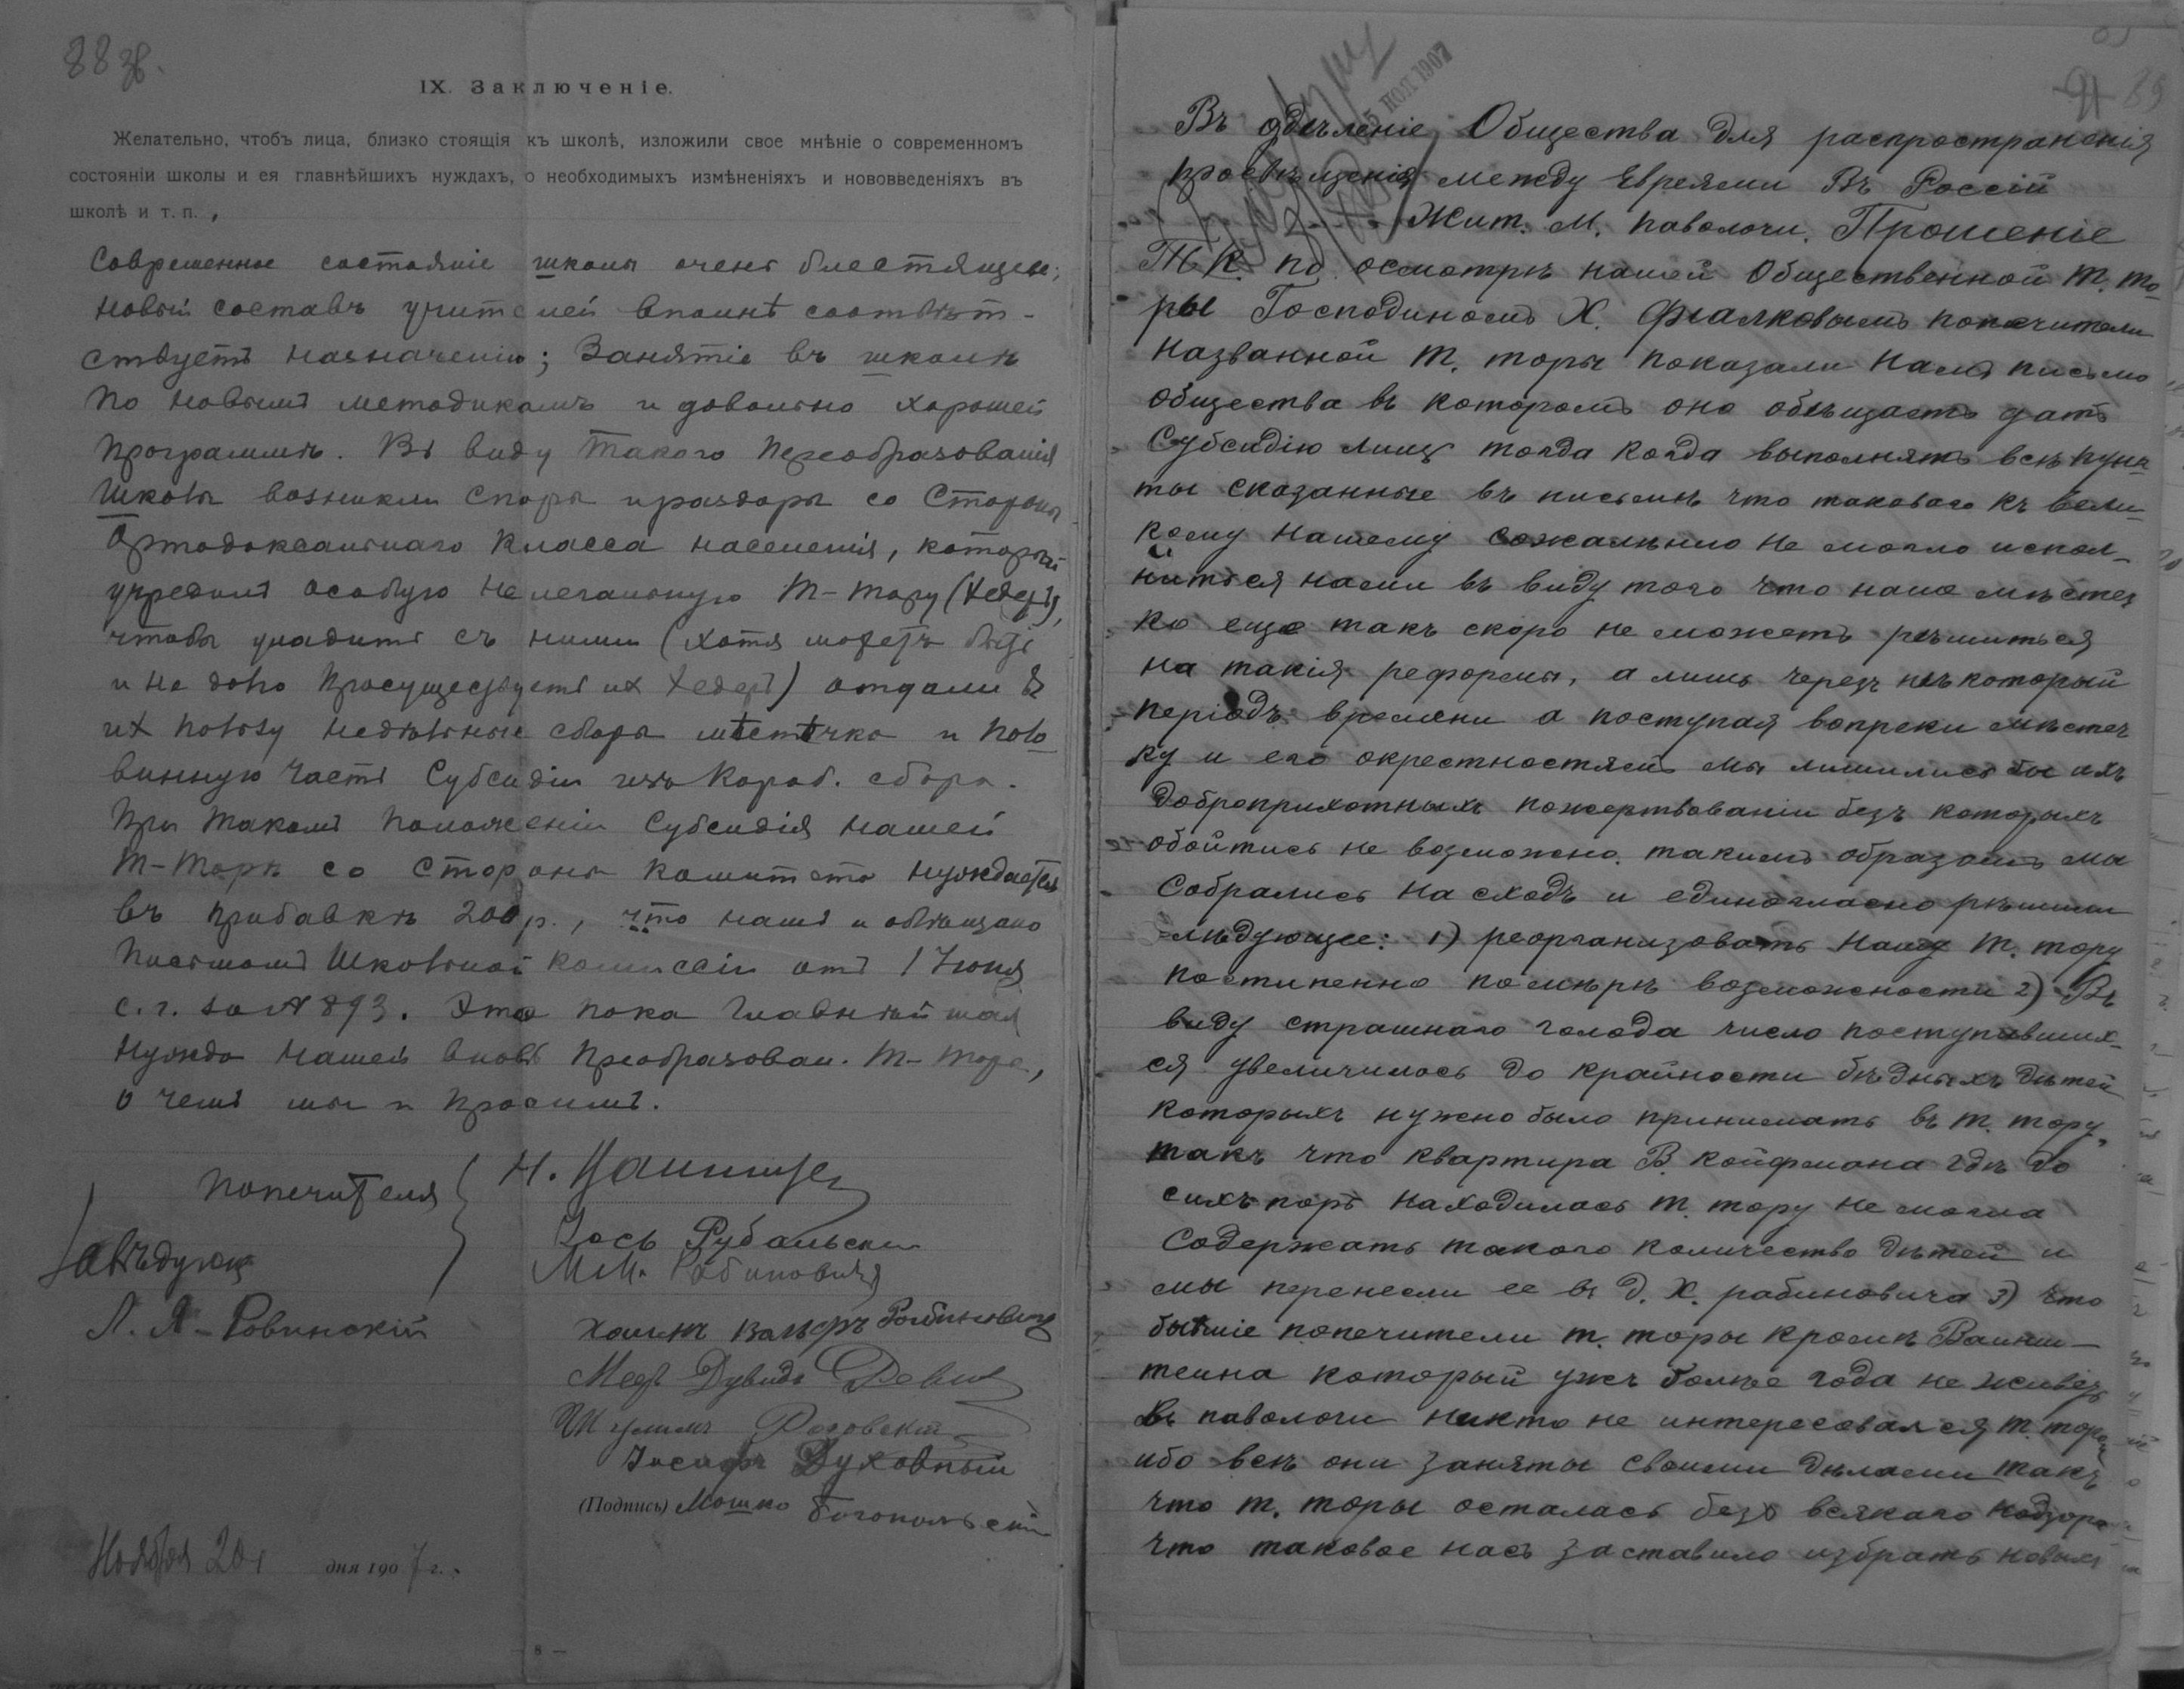 88 об.
IX. Заключеніе.
Желательно, чтобъ лица, близко стоящія къ школѣ, изложили свое мнѣніе о современномъ
состояніи школы и ея главнѣйшихъ нуждахъ, о необходимыхъ измѣненіяхъ и нововведеніяхъ въ
школѣ и т. п.
Современное состояніе школы очень блестящее;
новый составъ учителей вполнѣ соотвѣт-
ствуетъ назначенію; Занятіе въ школѣ
по новымъ методикамъ и довольно хорошей
программѣ. Въ виду такого переобразованія
школы возникли споры и раздоры со стороны
Ортодоксальнаго класса населенія, который
учредилъ особую нелегальную Т-тору (Хедеръ),
чтобы уладить съ ними (хотя можетъ быть
и не долго просуществуетъ их хедеръ) отдали въ
их пользу недѣльные сборы мѣстечка и поло
винную часть Субсидіи изъ Короб. сбора.
При такомъ положеніи Субсидія нашей
Т-Торѣ со стороны комитета нуждается
въ прибавкѣ 200 р., что намъ и обѣщано
письмомъ Школьной комиссіи отъ 1 Іюня
с. г. за № 893. Это пока главнѣйшая
нужда нашей вновь преобразован. Т-торы,
о чемъ мы и просимъ.
Попечителя
Іось Рубальски
М. М. Рабиновичъ
Завѣдующ
Л. Я. Ровинскій
Хаимъ Вольфъ Рабиновичъ
Меер Дувидъ
Іосифъ Духовный
(Подпись) Мошко Богопольскій
Ноября 20 дня 1907 г.
8
91 89
5 НОЯ 1907
Въ отдѣленіе Общества для распространенія
просвѣщенія между Евреями Въ Россій
Жит. М. паволочи. Прошеніе
Т К. по осмотрѣ нашей Общественной т. то-
ры Господиномъ Х. Фіалковымъ попечители
названной т. торы показали намъ письмо
общества въ которомъ оно обѣщаетъ дать
Субсидію лишь тогда когда выполнятъ всѣ пунк
ты сказанные въ письмѣ что таковаго къ вели-
кому нашему сожалѣнію не могло испол-
нится нами въ виду того что наше мѣстеч
ко еще такъ скоро не можетъ рѣшиться
на такія реформы, а лишь черезъ нѣкоторый
періодъ времяни а поступая вопреки мѣстеч
ку и его окрестностямъ мы лишились бы ихъ
доброприхотныхъ пожертвованіи безъ которыхъ
обойтись не возможно. такимъ образомъ мы
Собрались на сходъ и единогласно рѣшили
слѣдующее: 1) реорганизовать нашу т. тору
постипенно по мѣрѣ возможности 2) Въ
виду страшнаго голода число поступивших-
ся увеличилось до крайности бѣдныхъ дѣтей
которыхъ нужно было принимать въ т. тору,
такъ что квартира В. койфмана гдѣ до
сихъ поръ находилась т. тору не могла
Содержать такого количество дѣтей и
мы перенесли ее въ д. Х. рабиновича 3) что
бывшіе попечители т. торы кромѣ Ваинш-
теина который ужъ болѣе года не живетъ
въ паволочи никто не интересовался т. торой
ибо всѣ они заняты своими дѣлами такъ
что т. торы осталась безъ всякаго надзора
что таковое насъ заставило избрать новыхъ